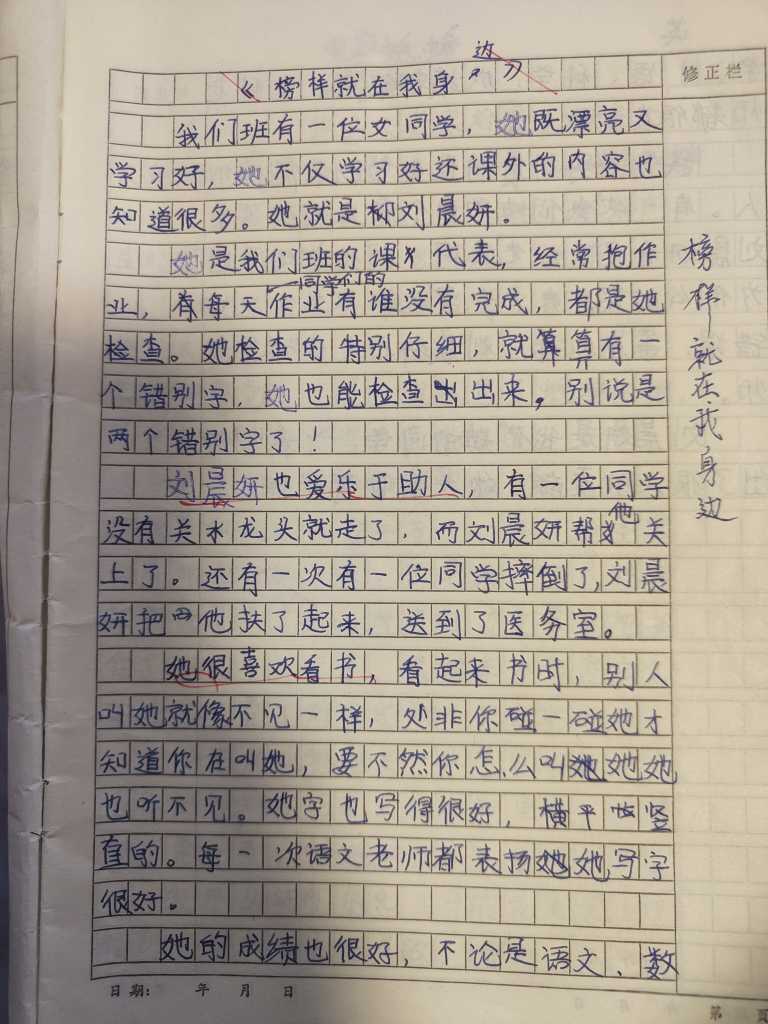 修正栏
《榜样就在我身边》
我们班有一位女同学，她既漂亮又
学习好，她不仅学习好还课外的内容也
知道很多。她就是柳刘晨妍。
她是我们班的课代表，经常抱作
业，有每天同学们的作业有谁没有完成，都是她
检查。她检查的特别仔细，就算算有一
个错别字，她也能检查出出来。别说是
两个错别字了！
刘晨妍也爱乐于助人，有一位同学
没有关水龙头就走了，而刘晨妍帮他关
上了。还有一次有一位同学摔倒了，刘晨
妍把他扶了起来，送到了医务室。
她很喜欢看书，看起来书时，别人
叫她就像不见一样，处非你碰一碰她才
知道你在叫她，要不然你怎么叫她她她
也听不见。她字也写得很好，横平竖
直的。每一次语文老师都表扬她她写字
很好。
她的成绩也很好，不论是语文、数
榜样就在我身边
日期： 年 月 日
第 页